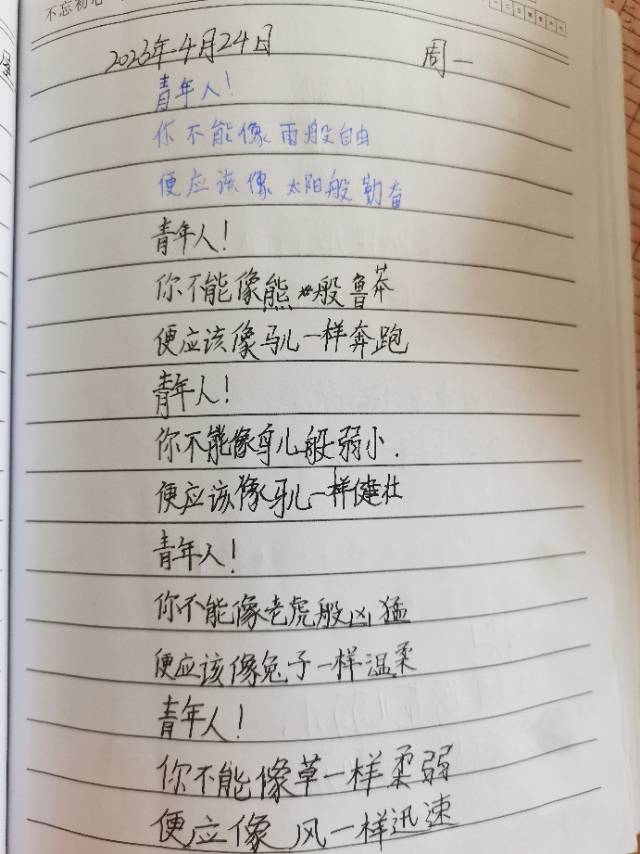 不忘初心
2023年4月24日 周一
青年人！
你不能像雨般自由
便应该像太阳般勤奋
青年人！
你不能像熊般鲁莽
便应该像马儿一样奔跑
青年人！
你不能像鸟儿般弱小.
便应该像牙儿一样健壮
青年人！
你不能像老虎般凶猛
便应该像兔子一样温柔
青年人！
你不能像草一样柔弱
便应像风一样迅速